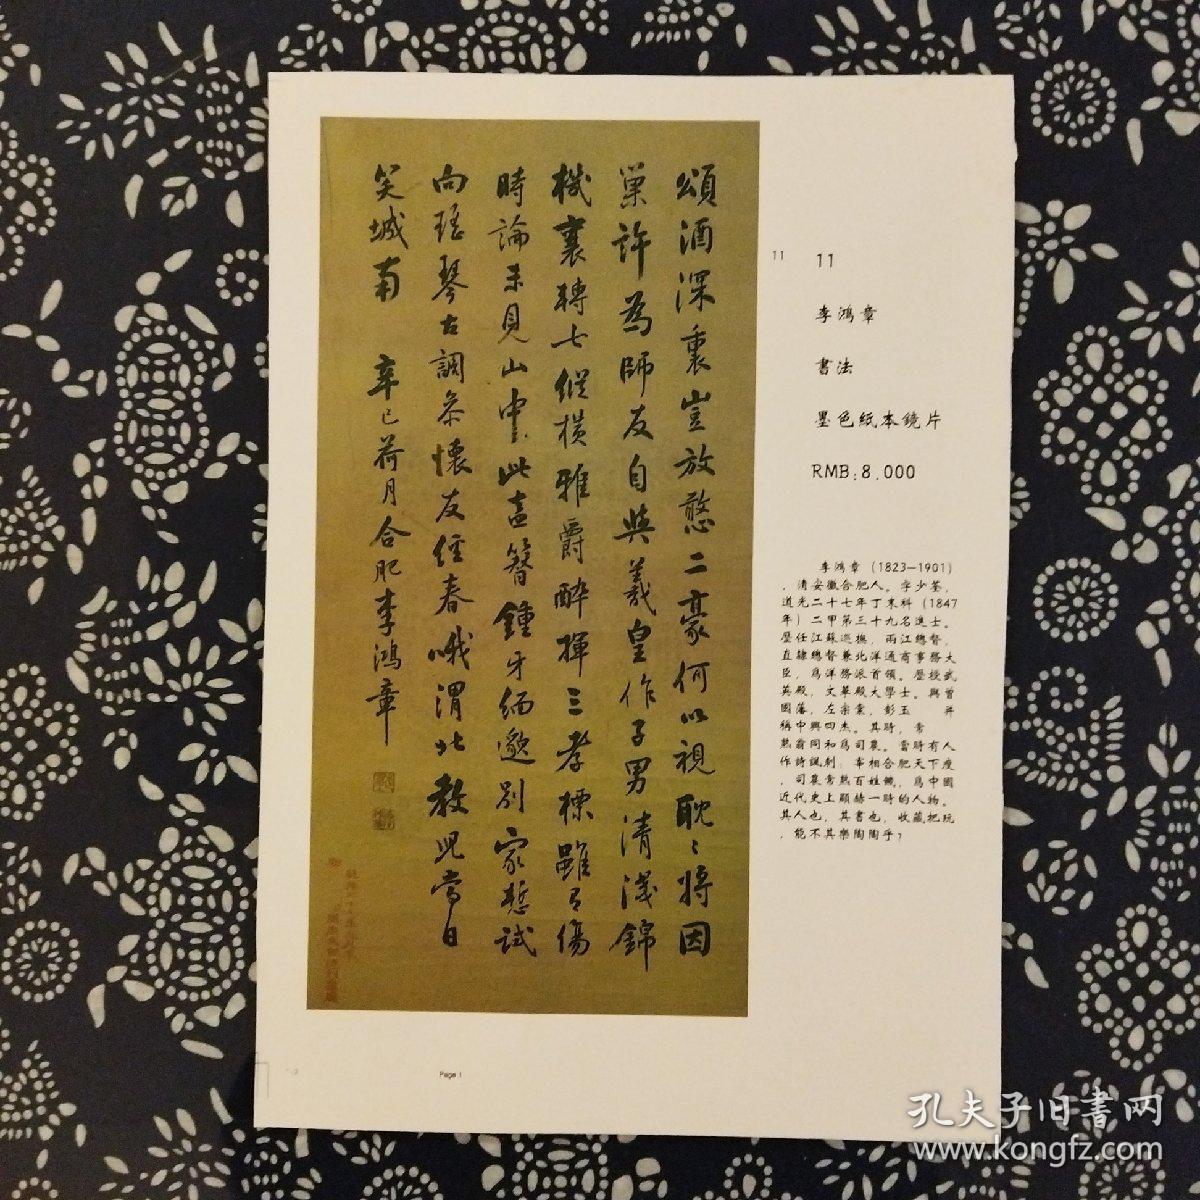 頌酒深裏豈放憨二豪何以視耽〻將因
巢許為師友自與羲皇作子男清淺錦
機裏轉七縱橫雅爵醉揮三孝標雖有傷
時論未見山中此盍簪鍾牙緬邈別家慙試
向瑤琴古調參懷友經春哦渭北教兒當日
笑城南 辛巳荷月合肥李鴻章
11
11
李鴻章
書法
墨色紙本鏡片
RMB:8,000
李鴻章（1823—1901）
，清安徽合肥人。字少荃，
道光二十七年丁未科（1847
年）二甲第三十九名進士。
歷任江蘇巡撫，兩江總督，
直隸總督兼北洋通商事務大
臣，爲洋務派首領。歷授武
英殿，文華殿大學士。與曾
國藩，左宗棠，彭玉 并
稱中興四杰。其時，常
熟翁同和爲司農。當時有人
作詩諷刺：宰相合肥天下瘦
，司農常熟百姓饑，爲中國
近代史上顯赫一時的人物。
其人也，其書也，收藏把玩
，能不其樂陶陶乎？
Page 1
孔夫子旧書网
www.kongfz.com